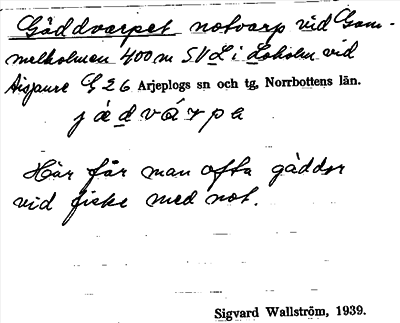 Gäddvarpet notvarp vid Gam-
melholmen 400 m SV L i Loholm vid
Aisjaure G 26 Arjeplogs sn och tg, Norrbottens län.
jädvárpa
Här får man ofta gäddor
vid fiske med not.
Sigvard Wallström, 1939.